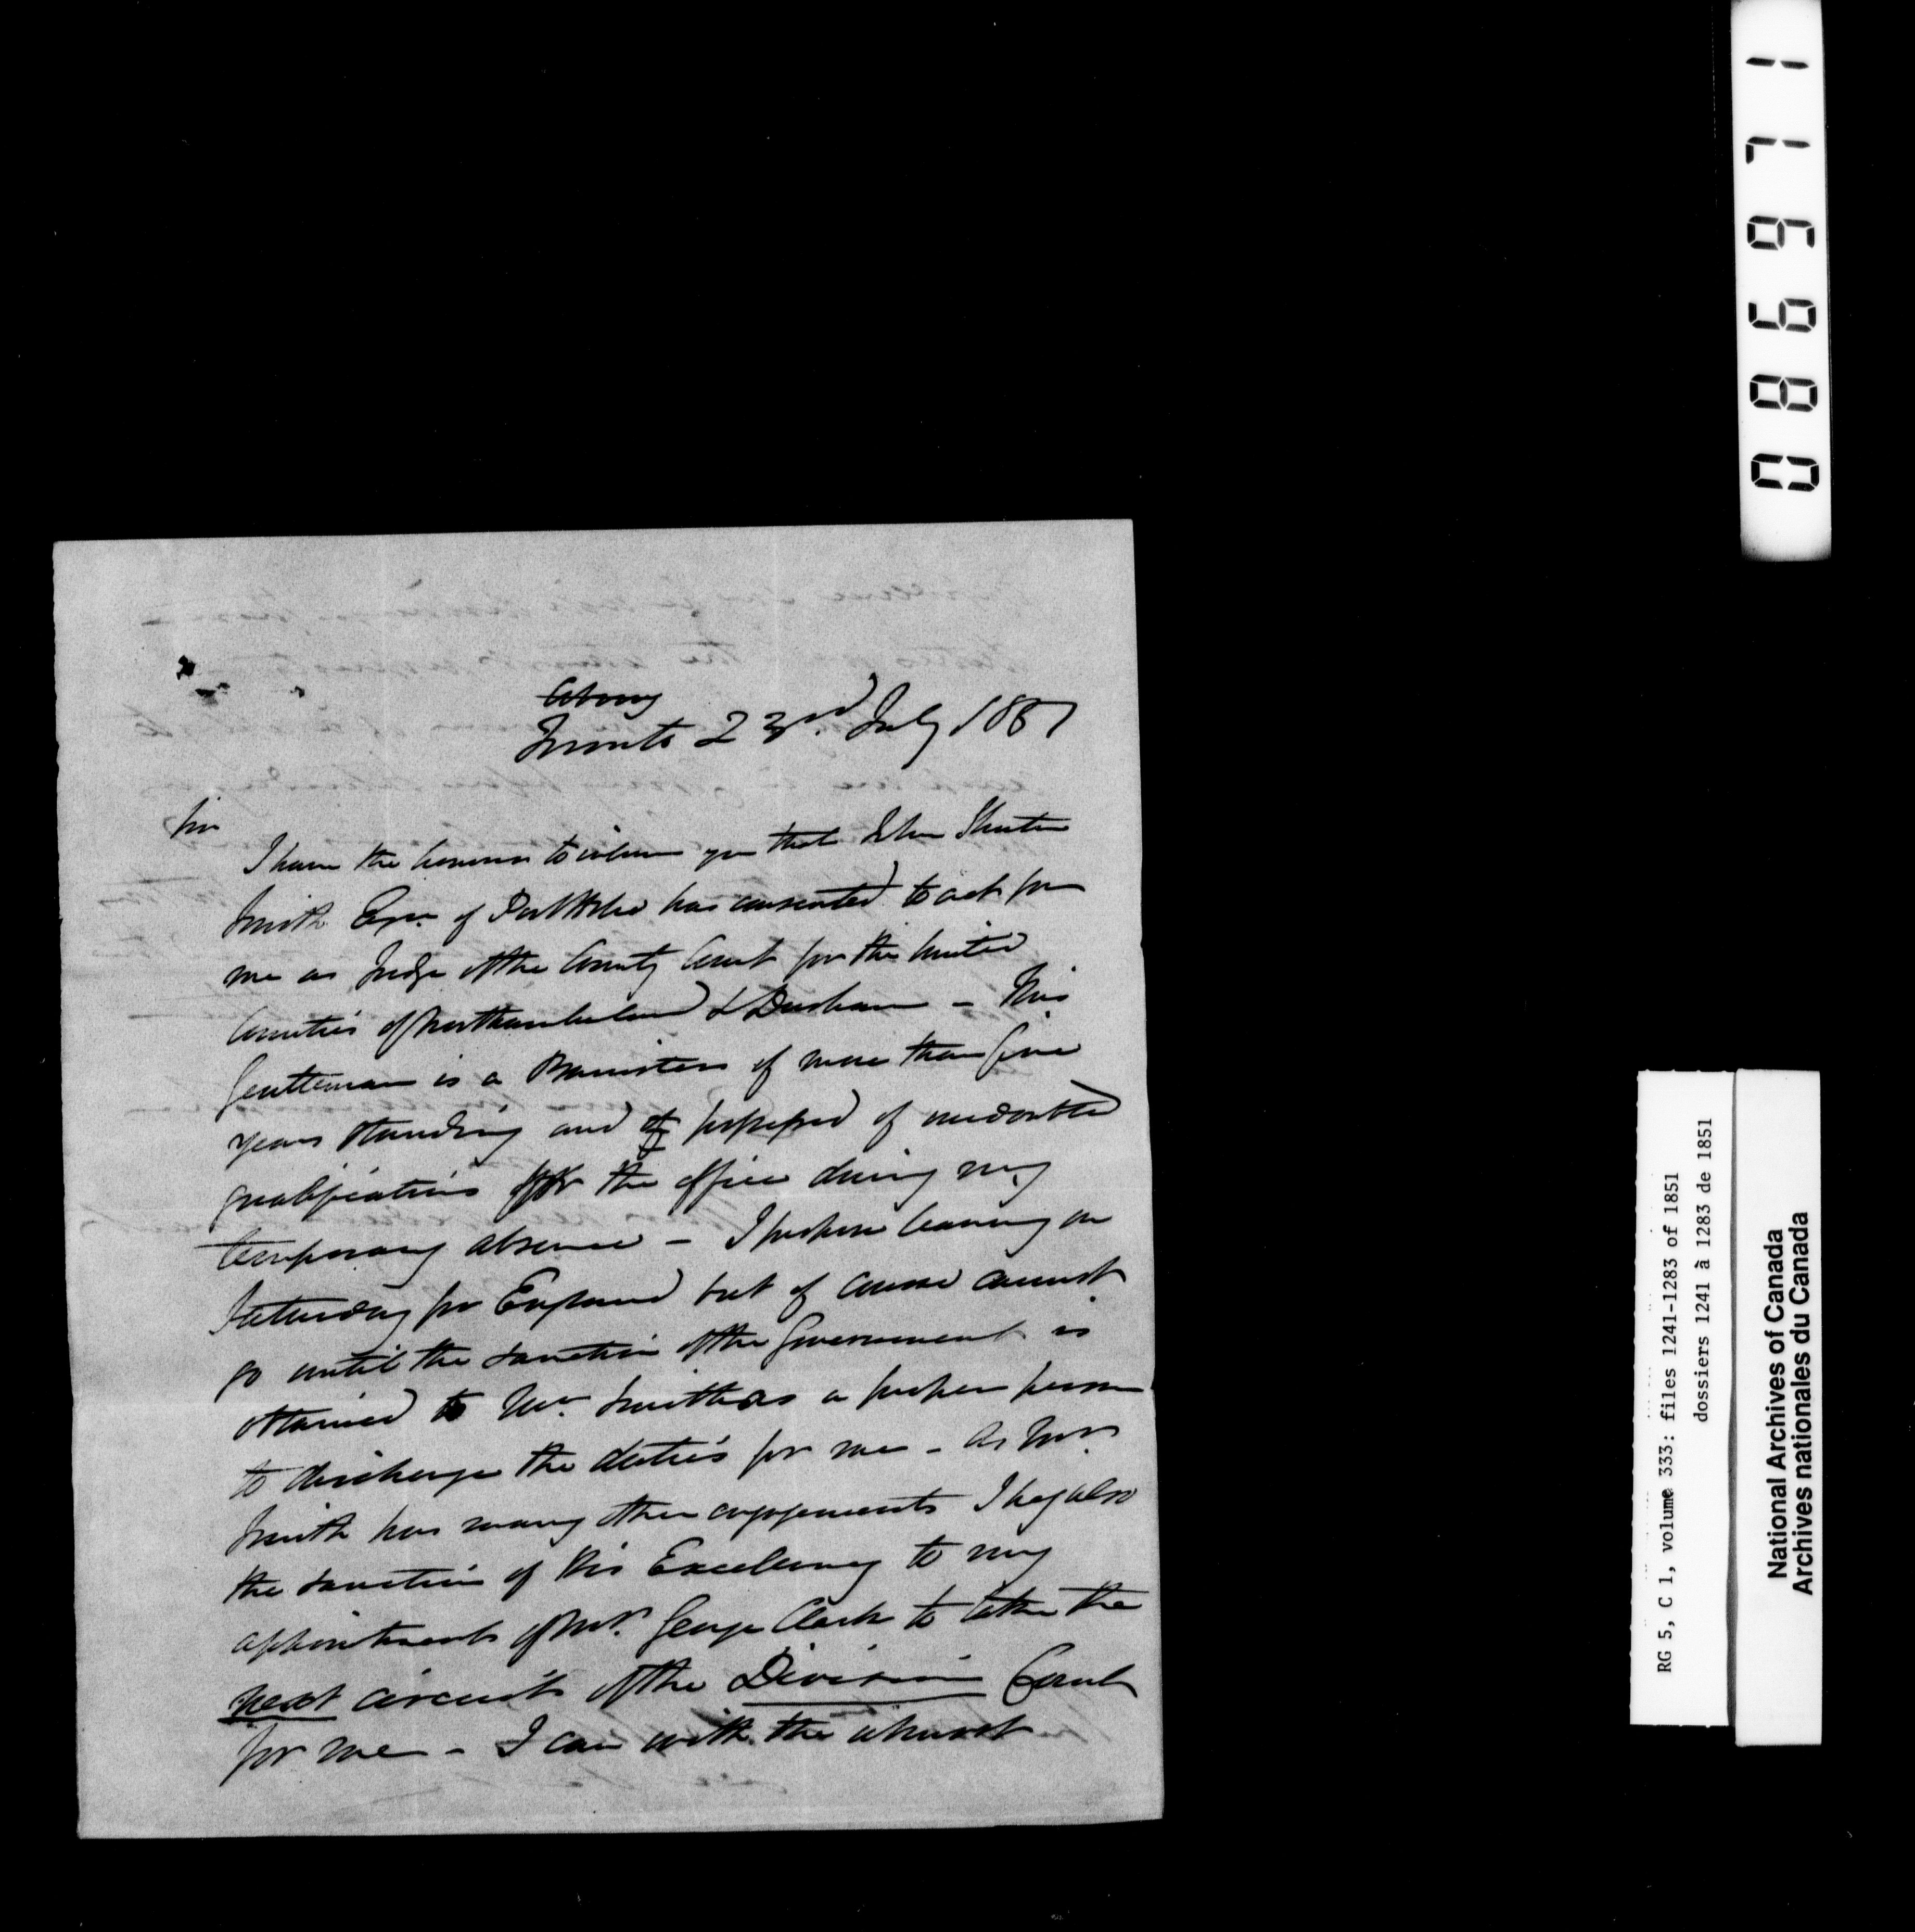 Cobourg
Toronto 23rd. July 1851
Sir
I have the honour to inform you that John Shuter
Smith Esqr. of Port Hope has consented to act for
me as Judge of the County Court for the United
Counties of Northumberland & Durham – This
Gentleman is a Barrister of more than five
years standing and is possessed of undoubted
qualifications for the office during my
temporary absence – I propose leaving on
Saturday for England but of course cannot
go until the sanction of the Government is
obtained to Mr. Smith as a proper person
to discharge the duties for me – As Mr.
Smith has many other engagements I beg also
the sanction of His Excellency to my
appointment of Mr. George Clark to take the
next circuit of the Division Court
for me – I can with the utmost
086971
RG 5, C 1, volume 333: files 1241-1283 of 1851
dossiers 1241 à 1283 de 1851
National Archives of Canada
Archives nationales du Canada